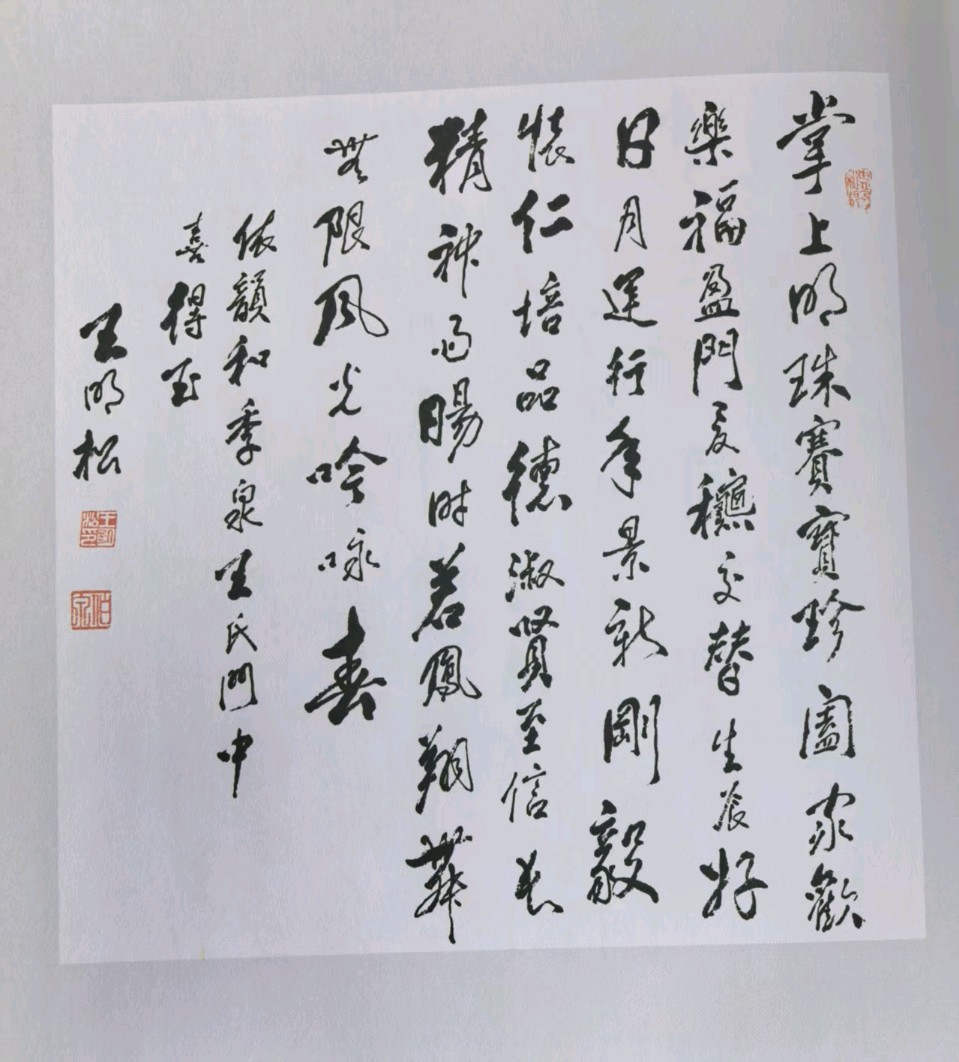 掌上明珠賽寶珍闔家歡
樂福盈門夏穐交替生辰好
日月運行年景新剛毅
懷仁培品德淑賢至信長
精神雨暘時若鳳翔舞
無限風光吟咏春
依韻和季泉王氏門中
喜得玉
王明松